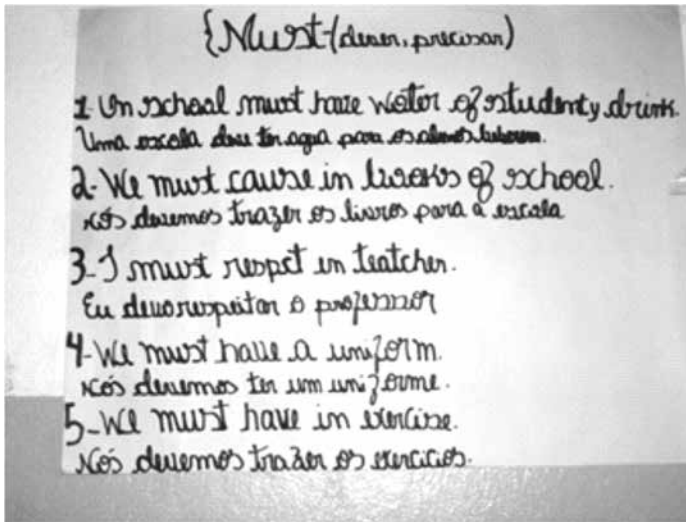 {Must-(dever, precisar)
1-Un school must have water of studenty drink.
Uma escola deve ter agua para os alunos beberem.
2-We must cause in books of school.
Nós devemos trazer os livros para a escola
3-I must respct in teatcher.
Eu devo respeitar o professor
4-We must have a uniform.
Nós devemos ter um uniforme.
5-We must have in exercise.
Nós devemos trazer os exercicios.